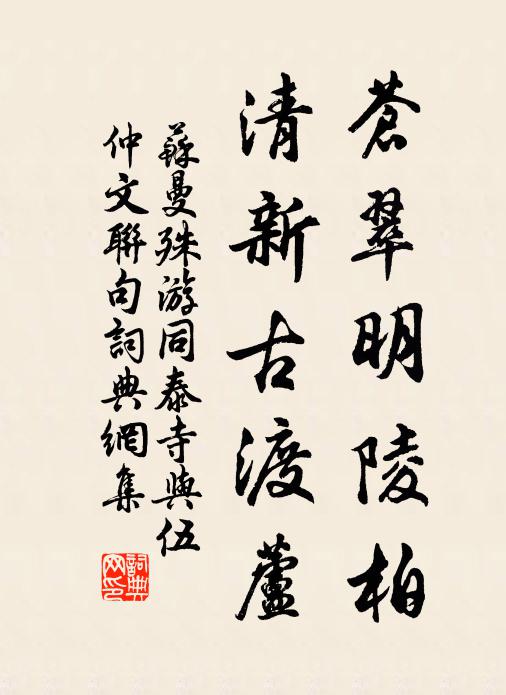 蒼翠明陵柏
清新古渡蘆
蘇曼殊游同泰寺與伍
仲文聯句詞典網集
詞典
网印